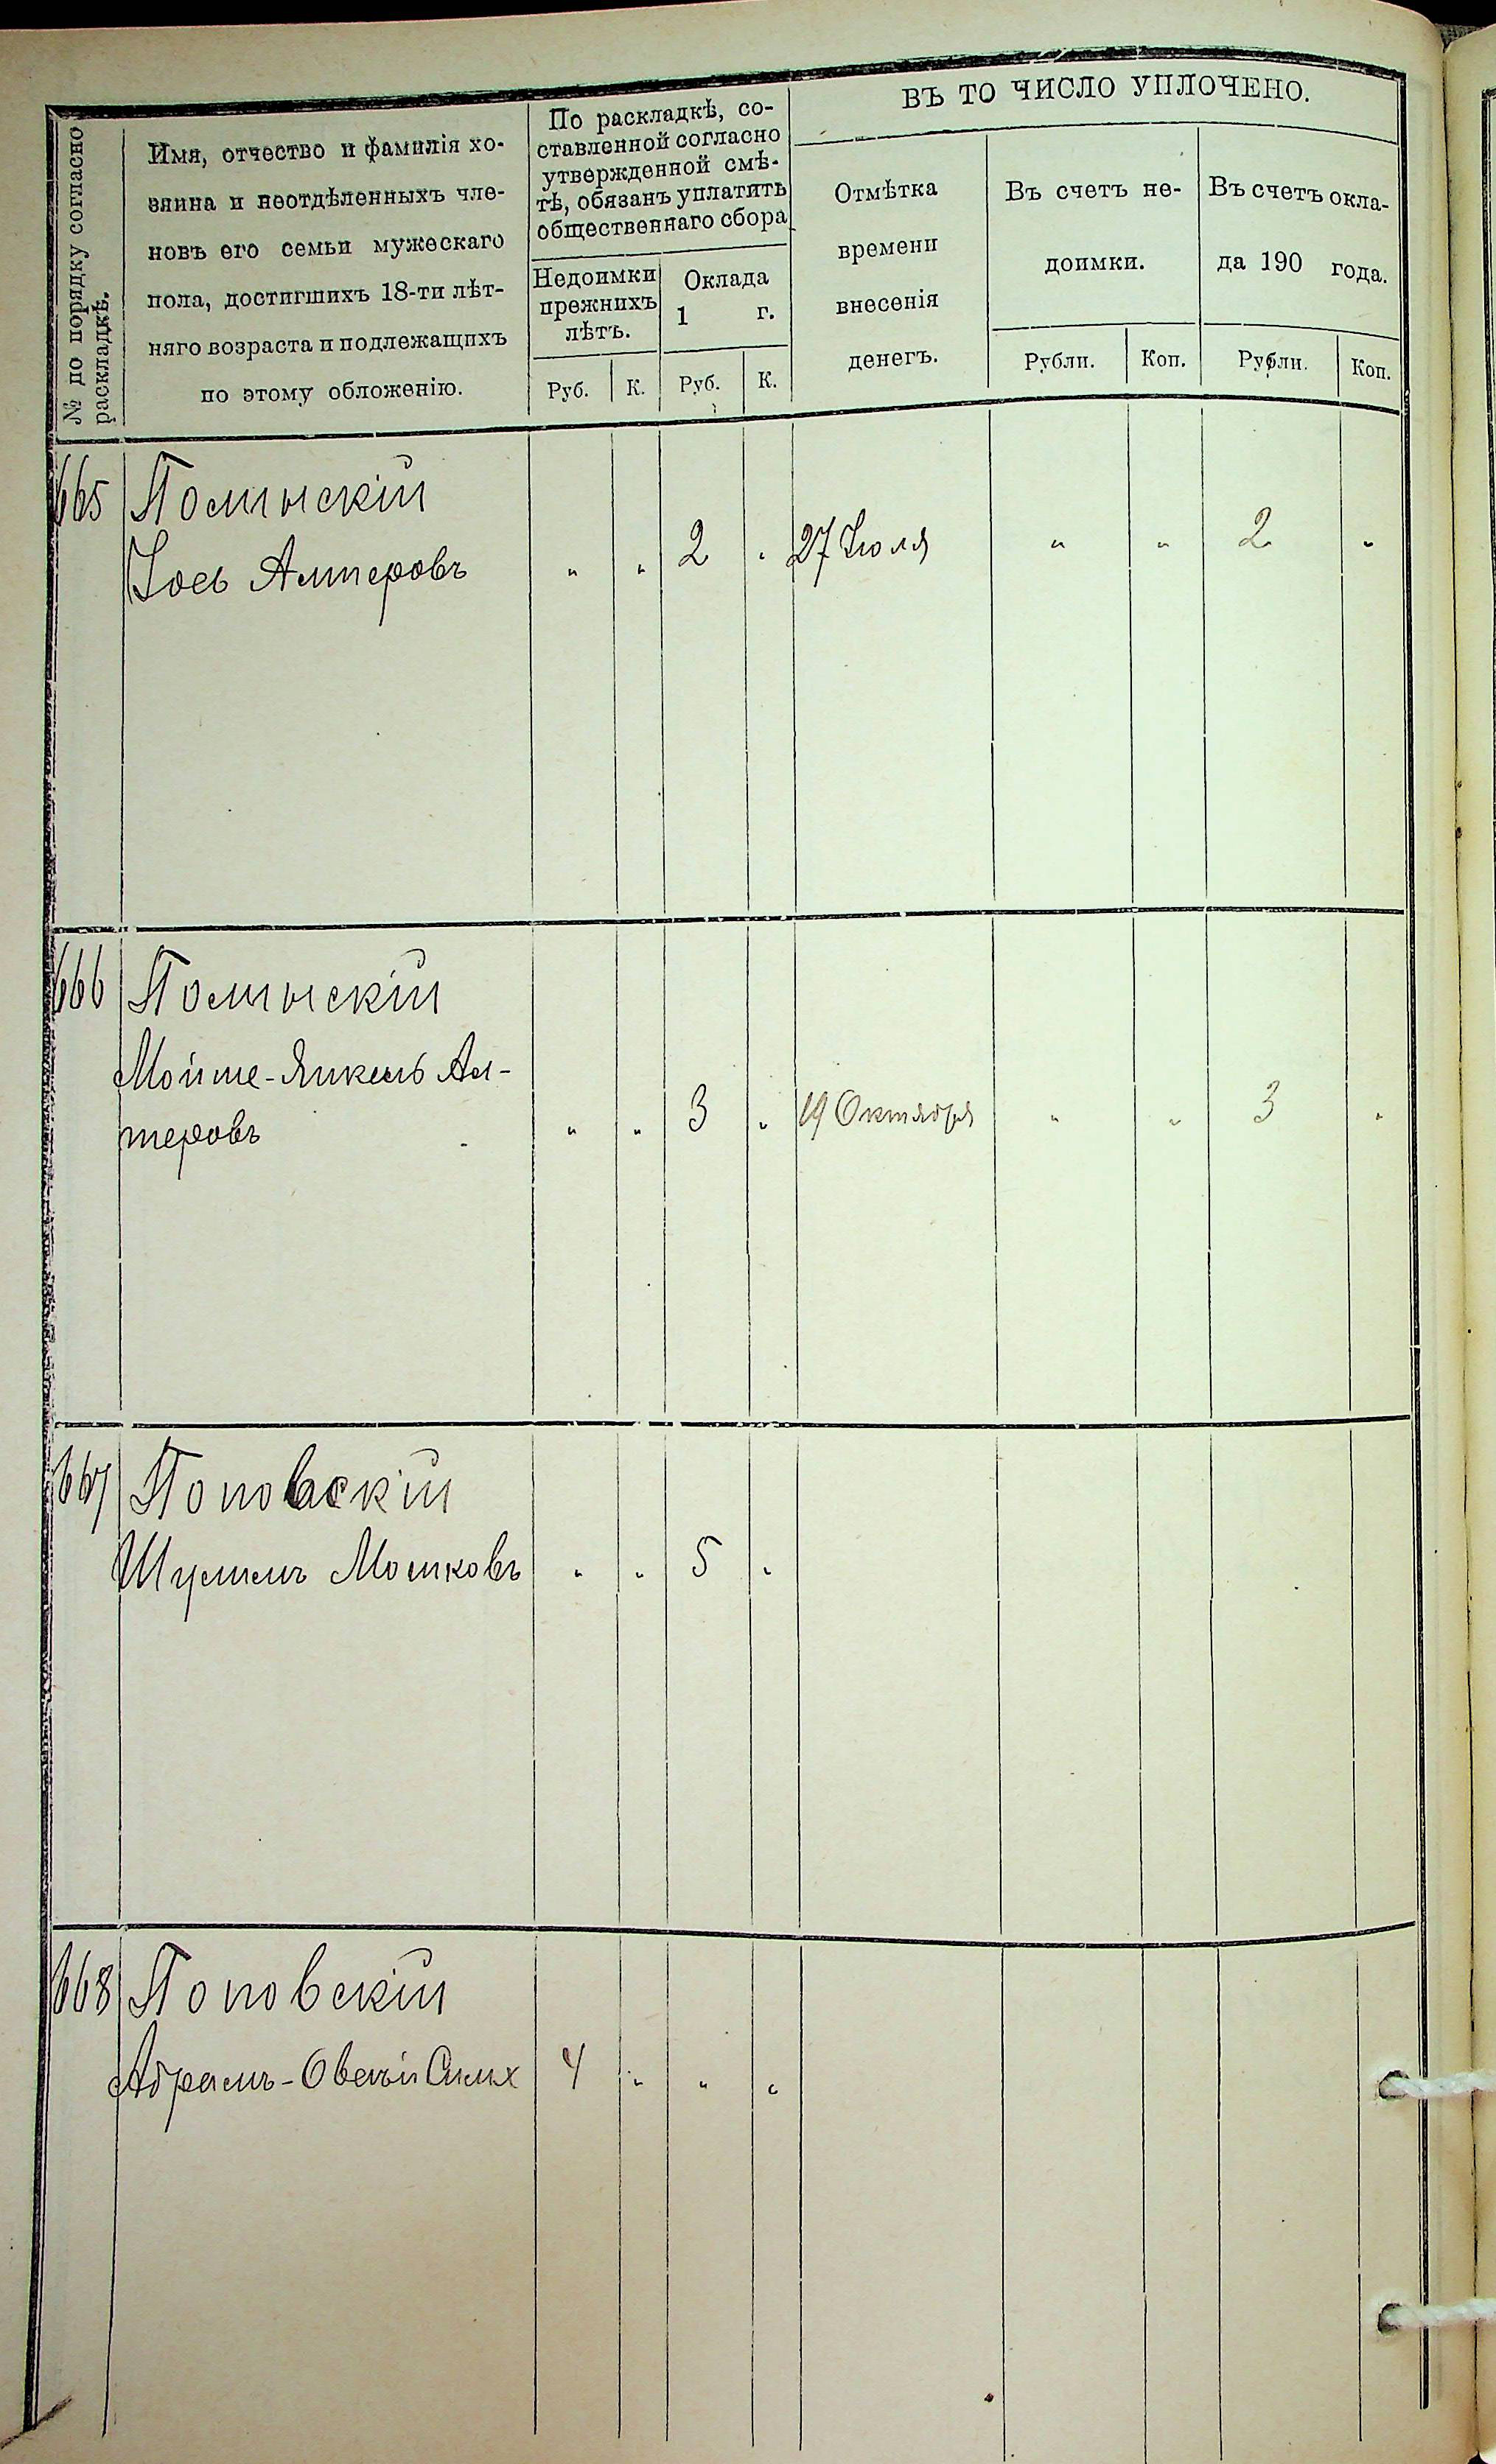 № по порядку согласно
раскладкѣ.
Имя, отчество и фамилія хо-
зяина и неотдѣленныхъ чле-
новъ его семьи мужескаго
пола, достигшихъ 18-ти лѣт-
няго возраста и подлежащихъ
по этому обложенію.
По раскладкѣ, со-
ставленной согласно
утвержденной смѣ-
тѣ, обязанъ уплатить
общественнаго сбора
Недоимки
прежнихъ
лѣтъ.
Оклада
1 г.
Руб. К. Руб. К.
ВЪ ТО ЧИСЛО УПЛОЧЕНО.
Отмѣтка
времени
внесенія
денегъ.
Въ счетъ не-
доимки.
Въ счетъ окла-
да 190 года.
Рубли. Коп. Рубли. Коп.
665 Полынскій
Іосъ Алтеровъ " " 2 " 27 Іюля " " 2 "
666 Полынскій
Мойше-Янкель Ал-
теровъ " " 3 " 19 Октября " " 3 "
667 Поповскій
Мошковъ " " 5 "
668 Поповскій
Абрамъ- 4 " " "